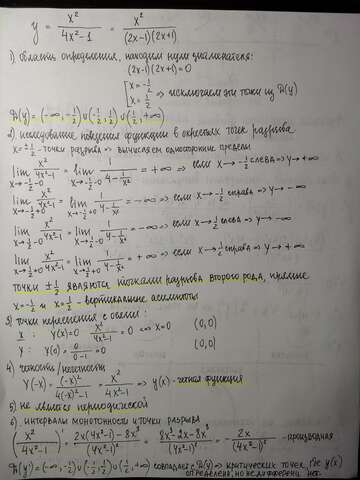 y = x²/(4x²-1) = x²/((2x-1)(2x+1))
1) область определения, находим нули знаменателя:
(2x-1)(2x+1)=0
[x=-1/2
[x=1/2 ⇒ исключаем эти точки из D(y)
D(y)=(-∞,-1/2)∪(-1/2,1/2)∪(1/2,+∞)
2) исследование поведения функции в окрестности точек разрыва
x=±1/2 - точки разрыва ⇒ вычисляем односторонние пределы
lim x→-1/2-0 x²/(4x²-1) = lim x→-1/2-0 1/(4-1/x²) = +∞ ⇒ если x→-1/2 слева ⇒ y→+∞
lim x→-1/2+0 x²/(4x²-1) = lim x→-1/2+0 1/(4-1/x²) = -∞ ⇒ если x→-1/2 справа ⇒ y→-∞
lim x→1/2-0 x²/(4x²-1) = lim x→1/2-0 1/(4-1/x²) = -∞ ⇒ если x→1/2 слева ⇒ y→-∞
lim x→1/2+0 x²/(4x²-1) = lim x→1/2+0 1/(4-1/x²) = +∞ ⇒ если x→1/2 справа ⇒ y→+∞
точки ±1/2 являются точками разрыва второго рода, прямые
x=-1/2 и x=1/2 - вертикальные асимптоты
3) точки пересечения с осями:
X: y(x)=0 x²/(4x²-1)=0 ⇔ x=0 (0,0)
Y: y(0)=0/(0-1)=0 (0,0)
4) четность/нечетность
y(-x)=(-x)²/(4(-x)²-1)=x²/(4x²-1) ⇒ y(x)-четная функция
5) не является периодической
6) интервалы монотонности и точки разрыва
(x²/(4x²-1))' = (2x(4x²-1)-8x³)/(4x²-1)² = (8x³-2x-8x³)/(4x²-1)² = -2x/(4x²-1)² - производная
D(y')=(-∞,-1/2)∪(-1/2,1/2)∪(1/2,+∞) совпадает с D(y) ⇒ критических точек, где y(x)
определена, но не дифферен. нет.